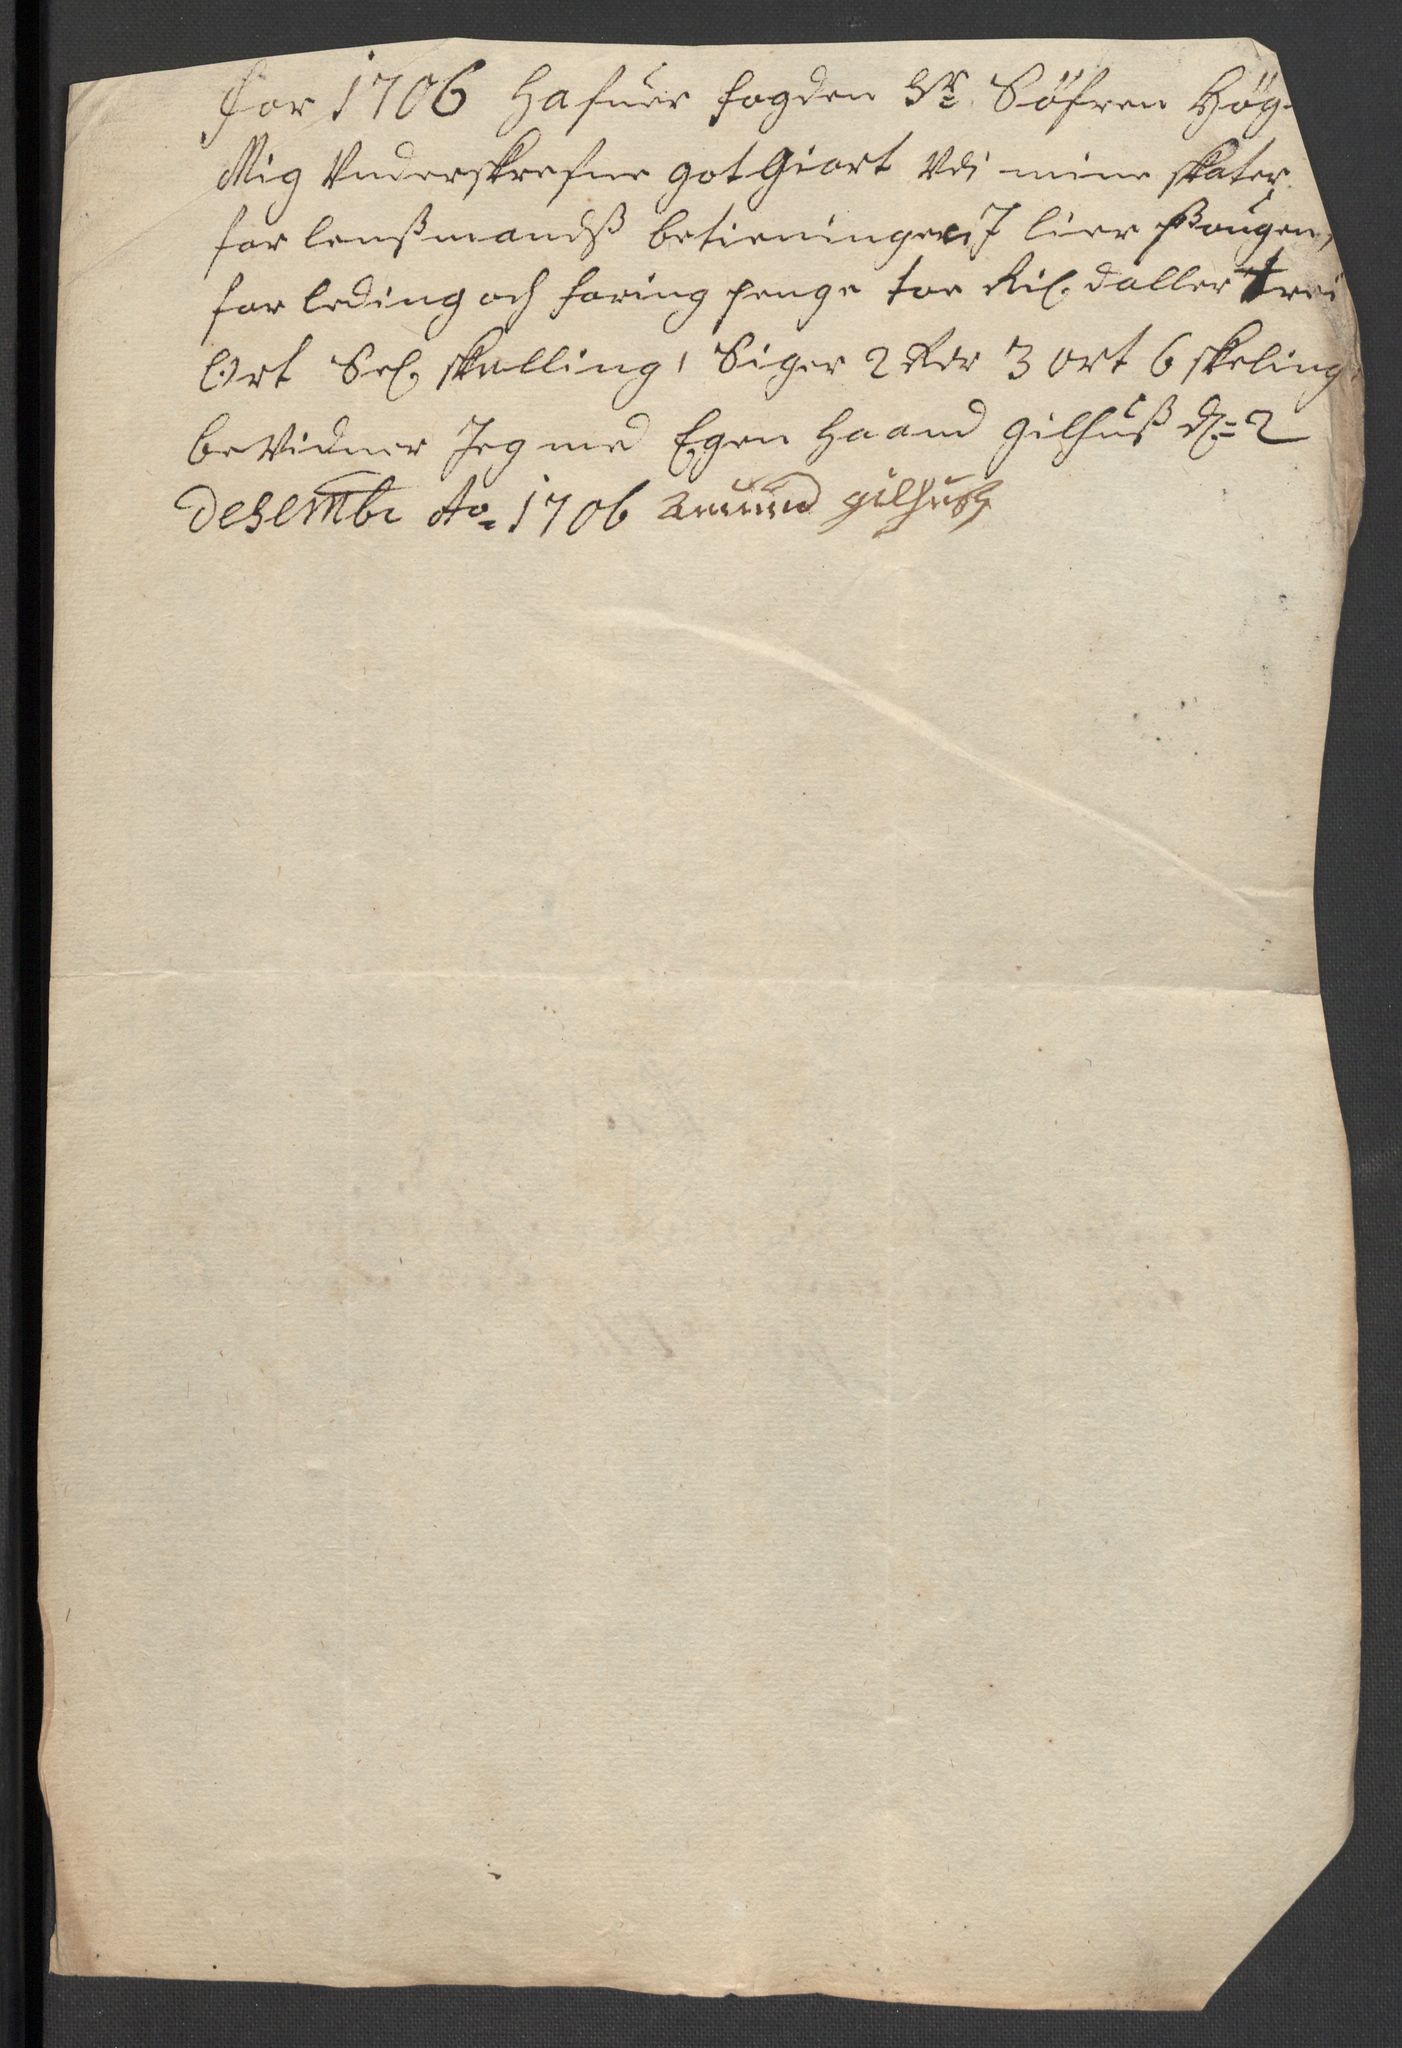 for 1706 Hafuer fogden Sr. Söfren Hög-
Mig Underskrefne got Giort Vdi mine skater
for lenßmandß betieninngen J lier Paugen,
for leding och foring penge toe Rix daller trei
Ort Sex skelling, Siger 2 Rdr 3 ort 6 skeling
beVidner Jeg med Egen Haand gilhuß d. 2
desembr Ao 1706 gilhuß